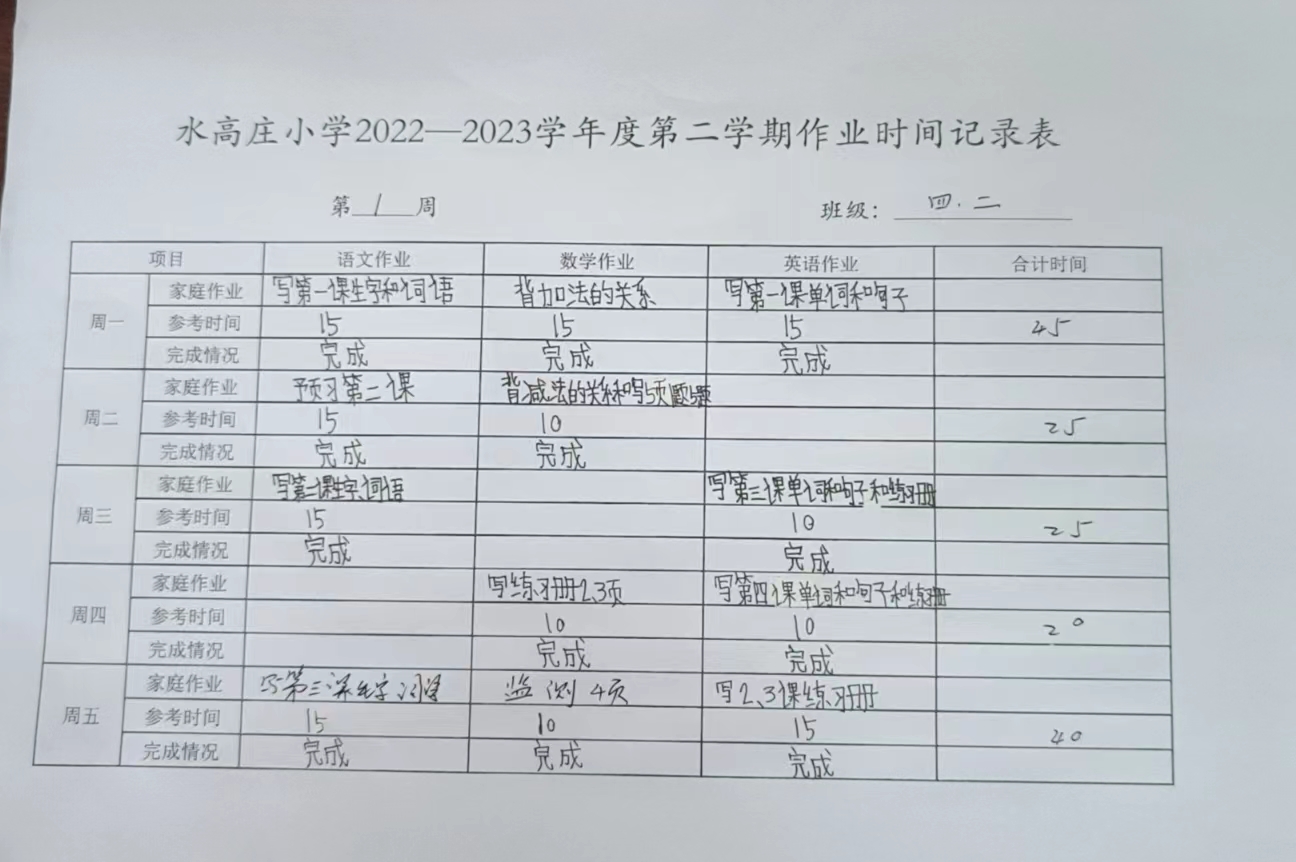 水高庄小学2022—2023学年度第二学期作业时间记录表
第1周 班级：四.二
项目 语文作业 数学作业 英语作业 合计时间
周一
家庭作业 写第一课生字和词语 背加法的关系 写第一课单词和句子
参考时间 15 15 15 45
完成情况 完成 完成 完成
周二
家庭作业 预习第二课 背减法的关系和写5页
参考时间 15 10 25
完成情况 完成 完成
周三
家庭作业 写第二课生字、词语 写第三课单词和句子和练习册
参考时间 15 10 25
完成情况 完成 完成
周四
家庭作业 写练习册2、3页 写第四课单词和句子和练习册
参考时间 10 10 20
完成情况 完成 完成
周五
家庭作业 写第三课生字词语 监测4页 写2、3课练习册
参考时间 15 10 15 40
完成情况 完成 完成 完成